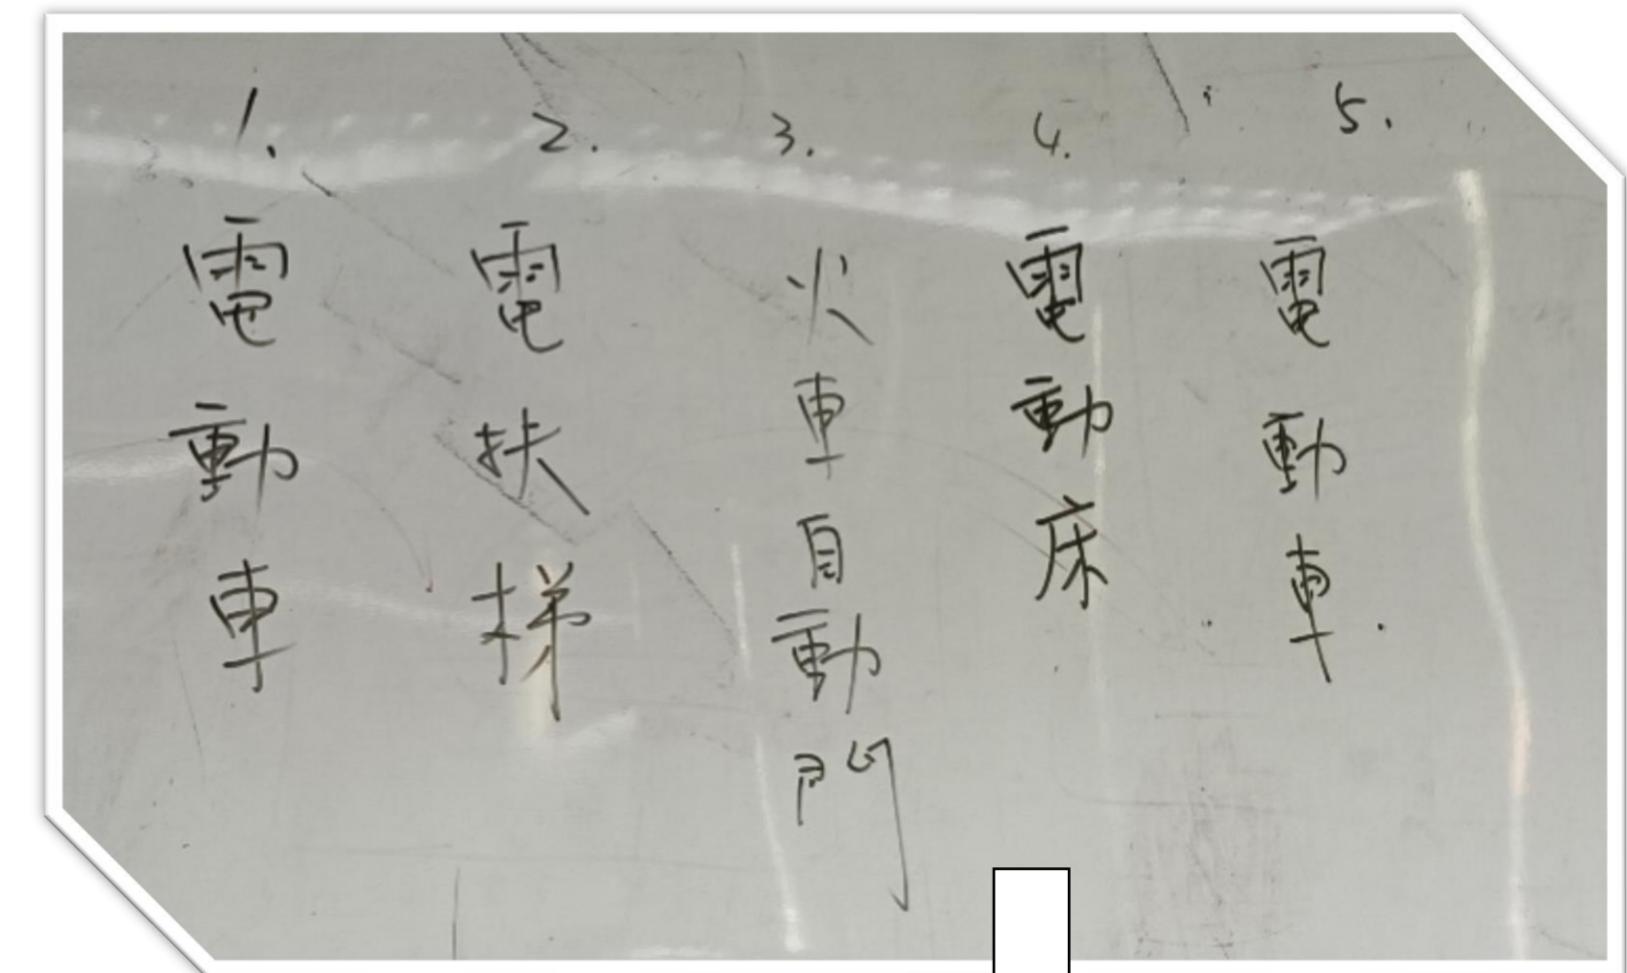 1.
電動車
2.
電扶梯
3.
火車自動門
4.
電動床
5.
電動車